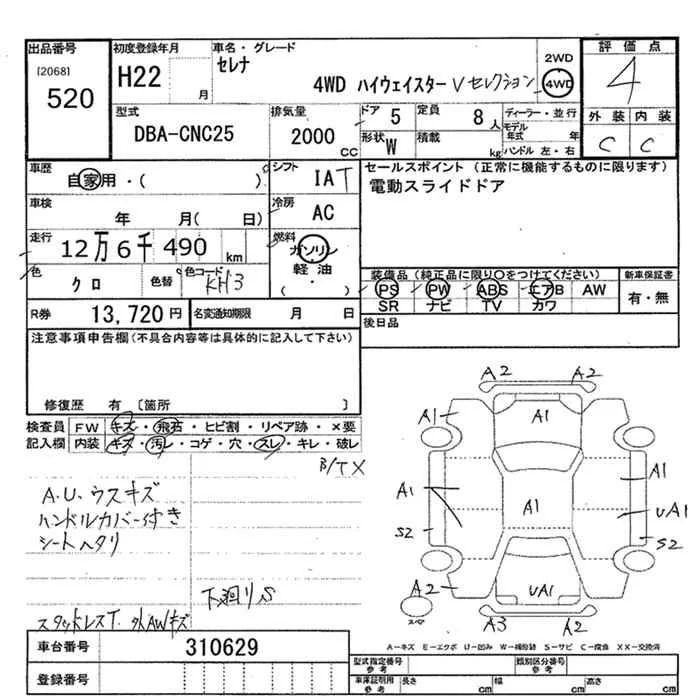 出品番号 初度登録年月 車名・グレード 2WD 評価点
[2068] H22 月 セレナ
520 4WD ハイウェイスター Vセレクション 4WD 4
型式 排気量 ドア 5 定員 8人 ディーラー・並行 外装 内装
DBA-CNC25 2000 CC 形状 W 積載 kg モデル年式 年 C C
ハンドル 左・右
車歴 自家用・( ) シフト IAT セールスポイント(正常に機能するものに限ります)
車検 年 月( 日) 冷房 AC 電動スライドドア
走行 12万6千490 km 燃料 ガソリン
軽油
( ・ )
色 クロ 色替 色コード KH3 装備品(純正品に限り○をつけてください) 新車保証書
PS PW ABS エアB AW 有・無
SR ナビ TV カワ
R券 13,720円 名変通知期限 月 日 後日品
注意事項申告欄(不具合内容等は具体的に記入して下さい)
修復歴 有 [箇所 ]
検査員 FW キズ・飛石・ヒビ割・リペア跡・×要
記入欄 内装 キズ・汚レ・コゲ・穴・スレ・キレ・破レ
B/TX
A.U.ウスキズ
ハンドルカバー付き
シートヘタリ
下廻りS
スタッドレスT. 外AWキズ
A2 A2
A1 A1
A1 A1 A1 UA1
S2 S2
A2 UA1
スペア A3 A2
A-キズ E-エクボ U-凹み W-補修跡 S-サビ C-腐食 XX-交換済
車台番号 310629
登録番号
型式指定番号 参考 類別区分番号 参考
車庫証明用 参考 長さ cm 幅 cm 高さ cm